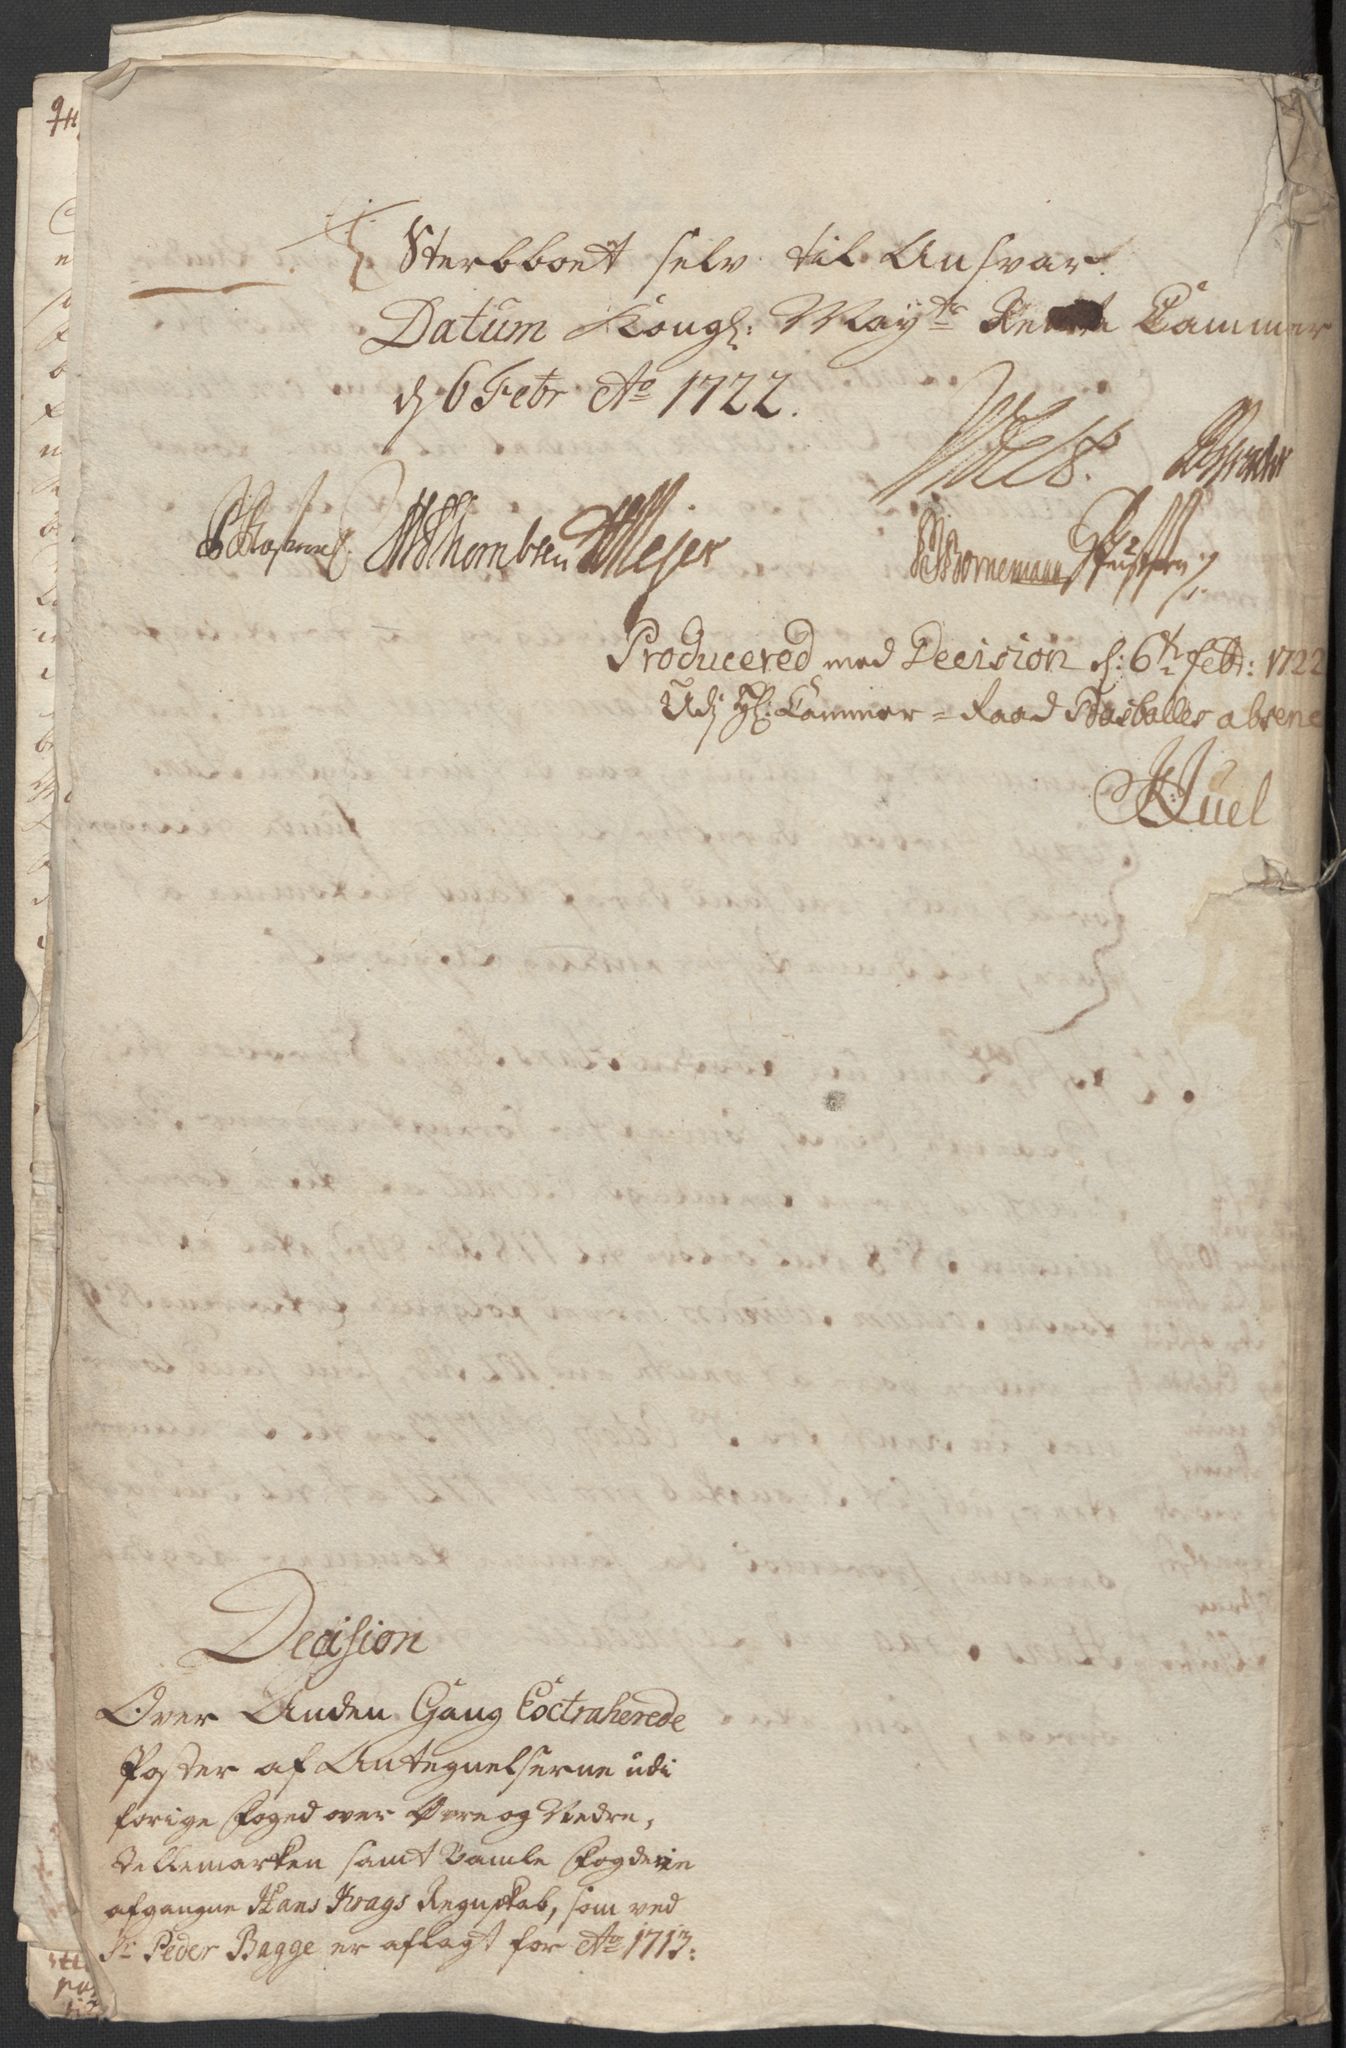 Sterbboet selv til Ansvar.
Datum Kongl: Mayts Rente Cammer
d 6 Febr Ao 1722.
Weis.
Thombsen Mejer Bornemann
Producered med Decision d: 6te Febr: 1722
Udj Hr: Cammer=Raad Basballes absence
Juel
Decision
Over Anden Gang Extraherede
Poster af Antegnelserne udi
forige Foged over Øvre og Nedre,
Tellemarken samt Bamle Fogderie
afgangne Hans Krags Regnskab, som ved
Sr Peder Bagge er aflagt for Ao 1713: